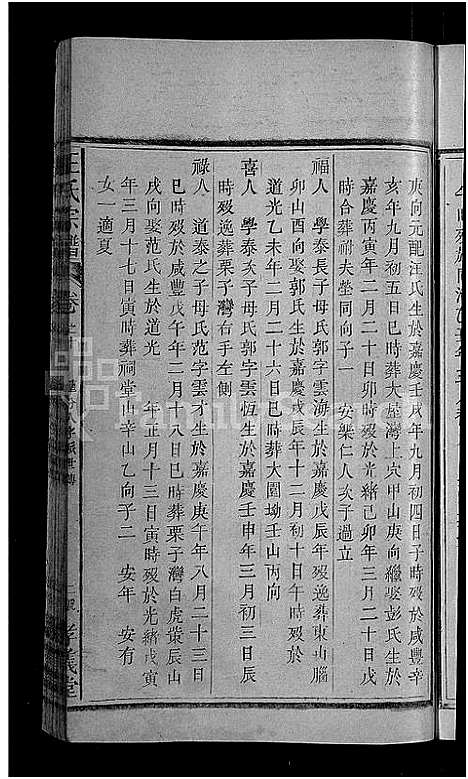 庚向元配汪氏生於嘉慶壬戌年九月初四日子時歿於咸豐辛
亥年九月初五日巳時葬大屋灣上穴甲山庚向繼娶彭氏生於
嘉慶丙寅年二月二十日卯時歿於光緒己卯年三月二十日戌
時合葬祔夫塋同向子一　安樂仁人次子過立
福人　學泰長子母氏郭字雲海生於嘉慶戊辰年歿逸葬東山腦
卯山酉向娶郭氏生於嘉慶戊辰年十二月初十日午時歿於
道光乙未年二月二十六日巳時葬大園坳壬山丙向
喜人　學泰次子母氏郭字雲恆生於嘉慶壬申年三月初三日辰
時歿逸葬栗子灣右手左側
祿人　道泰之子母氏范字雲才生於嘉慶庚午年八月二十三日
巳時歿於咸豐戊午年二月十八日巳時葬栗子灣白虎業辰山
戌向娶范氏生於　　年正月十三日寅時歿於光緒戊寅
年三月十七日寅時葬祠堂山辛山乙向子二　安年　安有
女一適夏
王氏宗譜
卷之
孝義堂